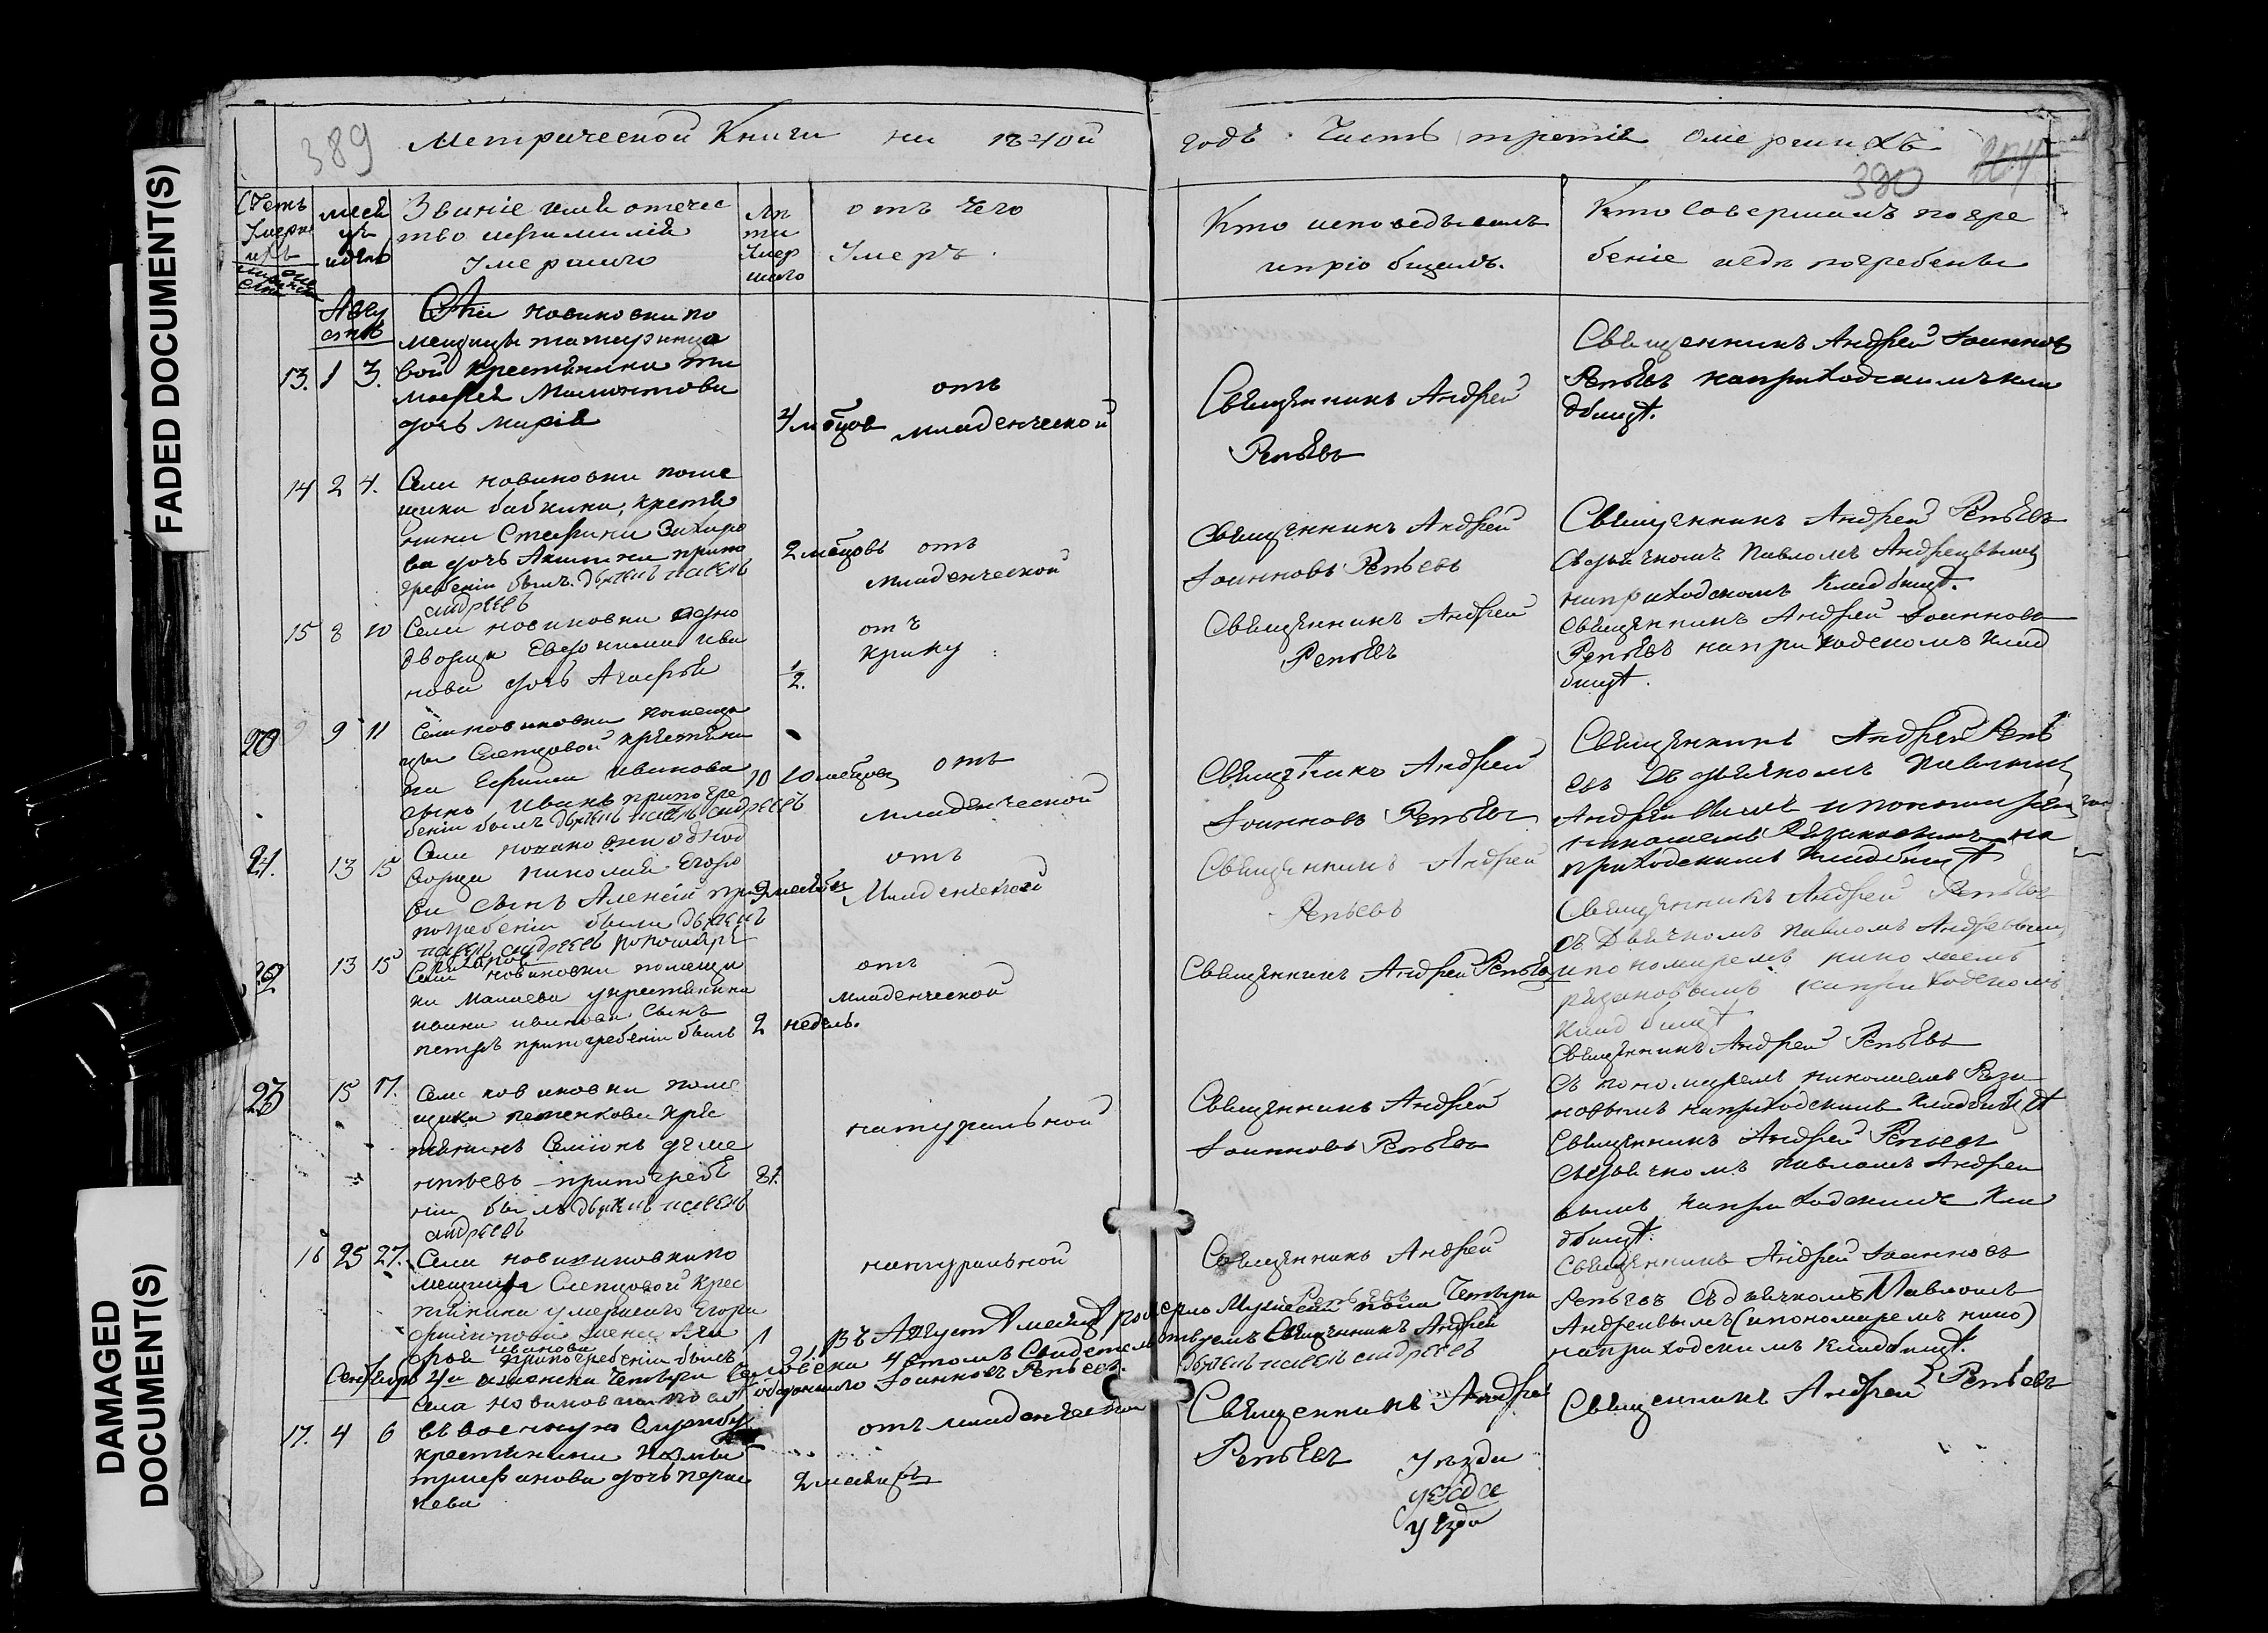 FADED DOCUMENT(S)
DAMAGED
DOCUMENT(S)
389
Метрической Книги на 1840й
годъ Часть третія омершихъ
380
204
Счетъ
Умерш
ихъ
месяцъ
и день
Званіе имя отечес
тво ифамилія
Умершаго
лѣ
та
Умер
шаго
отъ чего
Умеръ.
Кто исповедывалъ
ипріобщалъ.
Кто совершалъ погре
беніе игдѣ погребены
Авгу
стъ
13. 1 3.
Села новиковки по
мещицы
вой крестьянина Ти
мофея Мамонтова
дочь марія
4 мѣсцов
отъ
младенческой
Священникъ Андрей
Репьевъ
Священникъ Андрей Іоаннов
Репьевъ наприходскимъ кла
дбищѣ.
14 2 4.
Села новиковки поме
щика бабкина, крестья
нина Стефана Захаро
ва дочь Акилина припо
гребеніи былъ. дьячекъ павелъ
андреевъ
2 мѣсцовъ
отъ
младенческой
Священникъ Андрей
Іоанновъ Репьевъ
Священникъ Андрей Репьевъ
Сдьячкомъ Павломъ Андреевымъ
наприходскомъ Кладбищѣ.
15 8 10
Села новиковки одно
дворца Евдокима ива
нова дочь Агафья
1/2.
отъ
крику
Священникъ Андрей
Репьевъ
Священникъ Андрей Іоанновъ
Репьевъ наприходскомъ клад
бищѣ.
20 9 11
Села новиковки помещи
цы Слепцовой крестьяни
на Ефима иванова
сынъ Иванъ припогре
беніи былъ дьячекъ павелъ андреевъ
10 10 месцов
отъ
младенческой
Священникъ Андрей
Іоанновъ Репьевъ
Священникъ Андрей Репь
евъ Съ дьячкомъ Павломъ
Андреевымъ ипономарем
николаемъ Рязановымъ на
приходскимъ кладбищѣ
21. 13 15
Села новиковки однод
ворца николая Егоро
ва сынъ Алексій при
погребеніи были дьячекъ
павелъ андреевъ
2 месяцы
отъ
Младенческой
Священникъ Андрей
Репьевъ
Священникъ Андрей Репьевъ
съ Дьячкомъ павломъ Андреевым
ипономаремъ николаемъ
рязановымъ наприходскомъ
кладбищѣ
22 13 15
Села новиковки помещи
ка Малаева укрестьянина
ивана иванова Сынъ
петръ припогребеніи былъ
2 недель.
отъ
младенческой
Священникъ Андрей Репьевъ
Священникъ Андрей Репьевъ
съ пономаремъ николаемъ Ряза
новымъ наприходскимъ кладбищѣ
23 15 17.
Села новиковки поме
щика петенкова крес
тьянинъ Семіонъ деме
нтьевъ припогребе
ніи былъ дьячекъ павелъ
андреевъ
81.
натуральной
Священникъ Андрей
Іоанновъ Репьевъ
Священникъ Андрей Репьевъ
Сдьячкомъ павломъ Андрее
вымъ наприходскимъ Кла
дбищѣ.
16 25 27.
Села новиковки по
мещицы Слепцовой крес
тьянина умершаго Егора
жена Ага
фья иванова припогребеніи былъ
натуральной
Священникъ Андрей
Репьевъ
дьячекъ павелъ андреевъ
Священникъ Андрей Іоанновъ
Репьевъ Сдьячкомъ Павломъ
Андреевымъ (ипономаремъ нико)
наприходскимъ Кладбищѣ.
Въ Августѣ месяцѣ померло Мужеска пола Четыри
женска Четыри Человека Священникъ Андрей
Іоанновъ Репьевъ.
Сентябрь
17. 4 6
Села новиковки
въ военную службу
крестьянина
трифанова дочь параc
кева
2 месяцы
отъ младенческой
Священникъ Андрей
Репьевъ
Священникъ Андрей Репьевъ
уезда
уезда
уезда